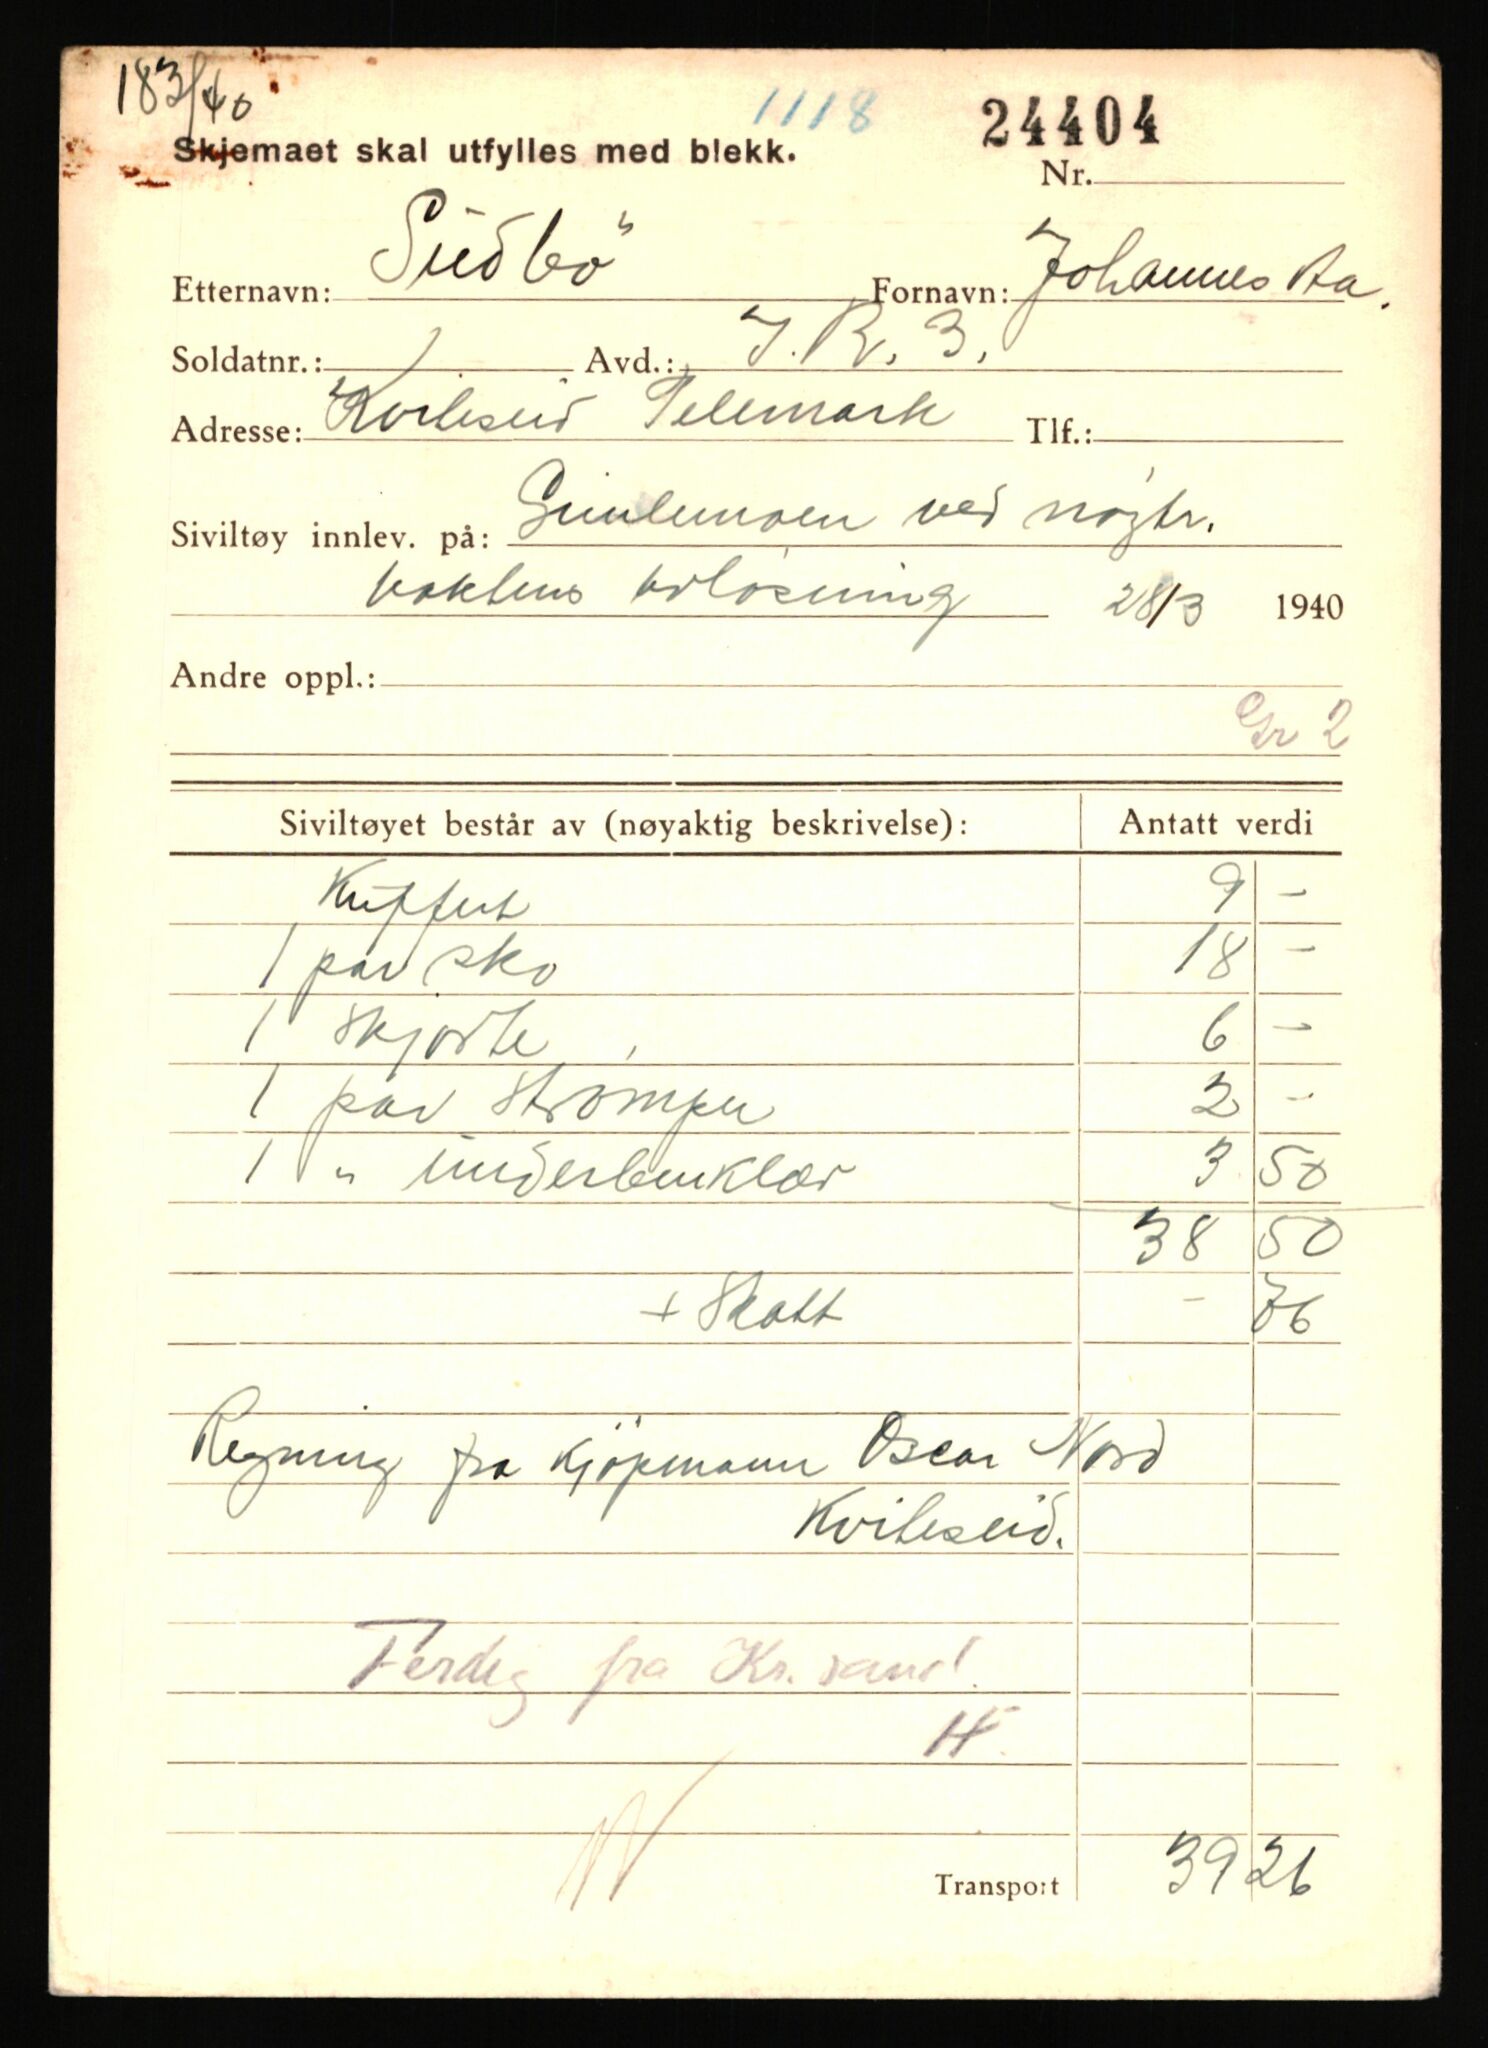 183/40
1118
24404
Skjemaet skal utfylles med blekk.
Nr.
Etternavn: Sudbö Fornavn: Johannes Aa.
Soldatnr.: / Avd.: I.R. 3.
Adresse: Kviteseid Telemark Tlf.:
Siviltøy innlev. på: Gimlemoen ved nöytr.
vaktens avlösning 28/3 1940
Andre oppl.:
Gr 2
Siviltøyet består av (nøyaktig beskrivelse): Antatt verdi
Kuffert 9 -
1 par sko 18 -
1 Skjorte 6 -
1 par Strömper 2 -
1 " underbenklær 3 50
38 50
+ Skatt - 76
Regning fra kjöpmann Oscar Nord
Kviteseid.
Ferdig fra Kr.sand.
H.
Transport 39 26